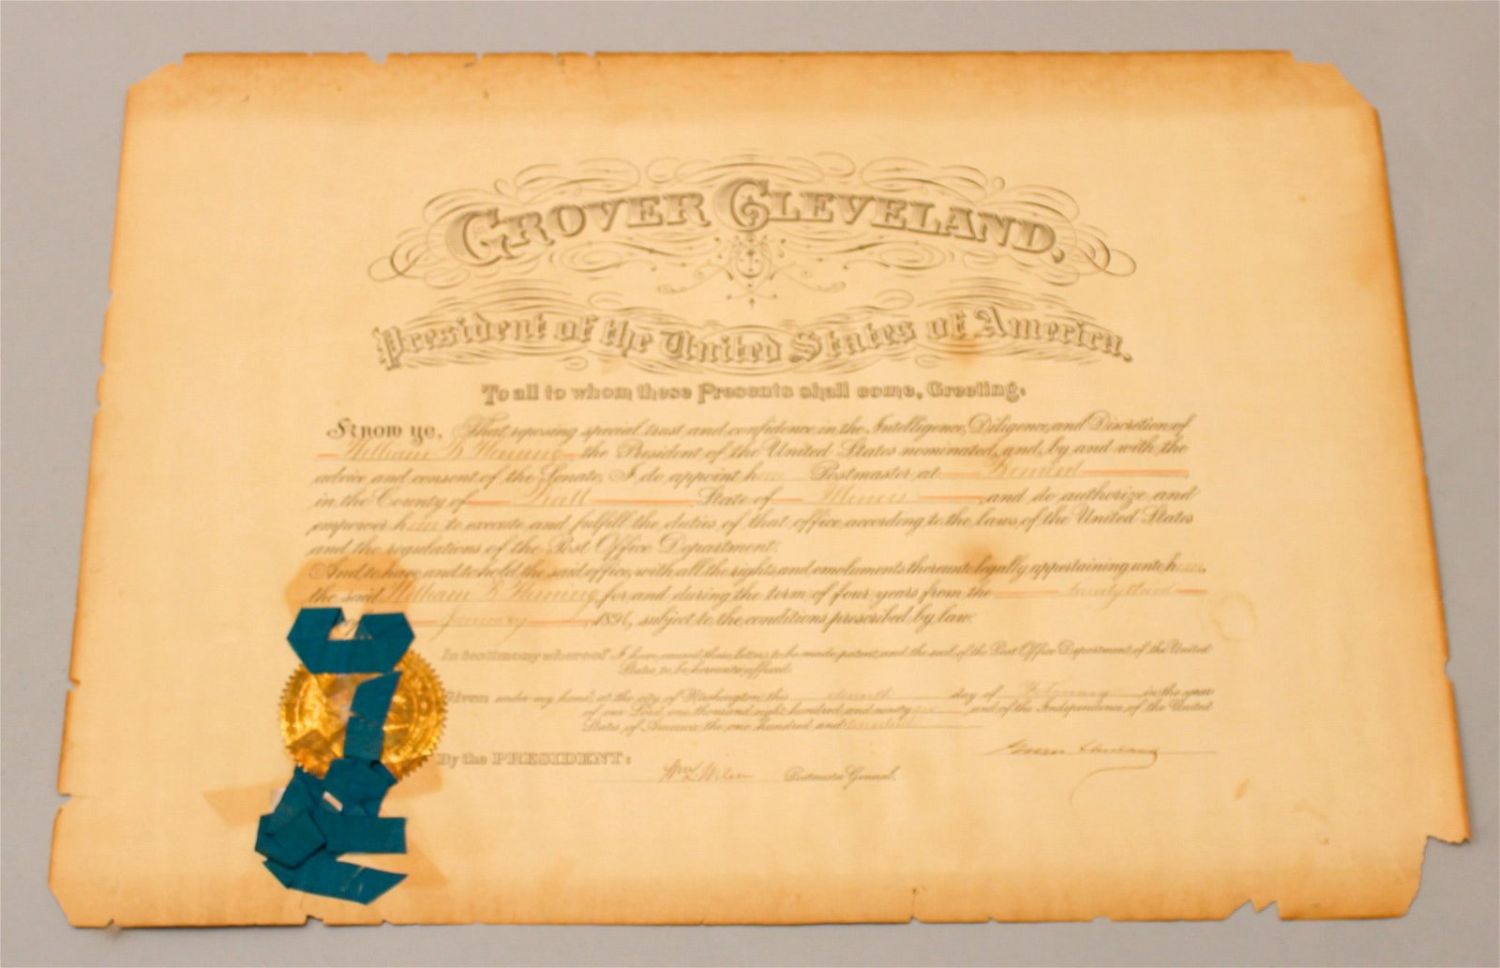 GROVER CLEVELAND,
President of the United States of America.
To all to whom these Presents shall come, Greeting:
Know ye, That reposing special trust and confidence in the Intelligence, Diligence, and Discretion of
William the President of the United States nominated, and, by and with the
advice and consent of the Senate, I do appoint him Postmaster at Bement
in the County of Piatt State of Illinois and do authorize and
empower him to execute and fulfill the duties of that office according to the laws of the United States
and the regulations of the Post Office Department.
And to have and to hold the said office, with all the rights and emoluments thereunto legally appertaining unto him,
the said William for and during the term of four years from the
January 1896, subject to the conditions prescribed by law.
In testimony whereof I have caused these letters to be made patent, and the seal of the Post Office Department of the United
States to be hereunto affixed.
Given under my hand, at the city of Washington, this day of February in the year
of our Lord one thousand eight hundred and ninety six and of the Independence of the United
States of America the one hundred and
By the PRESIDENT:
Grover Cleveland
Wm L Wilson Postmaster General.